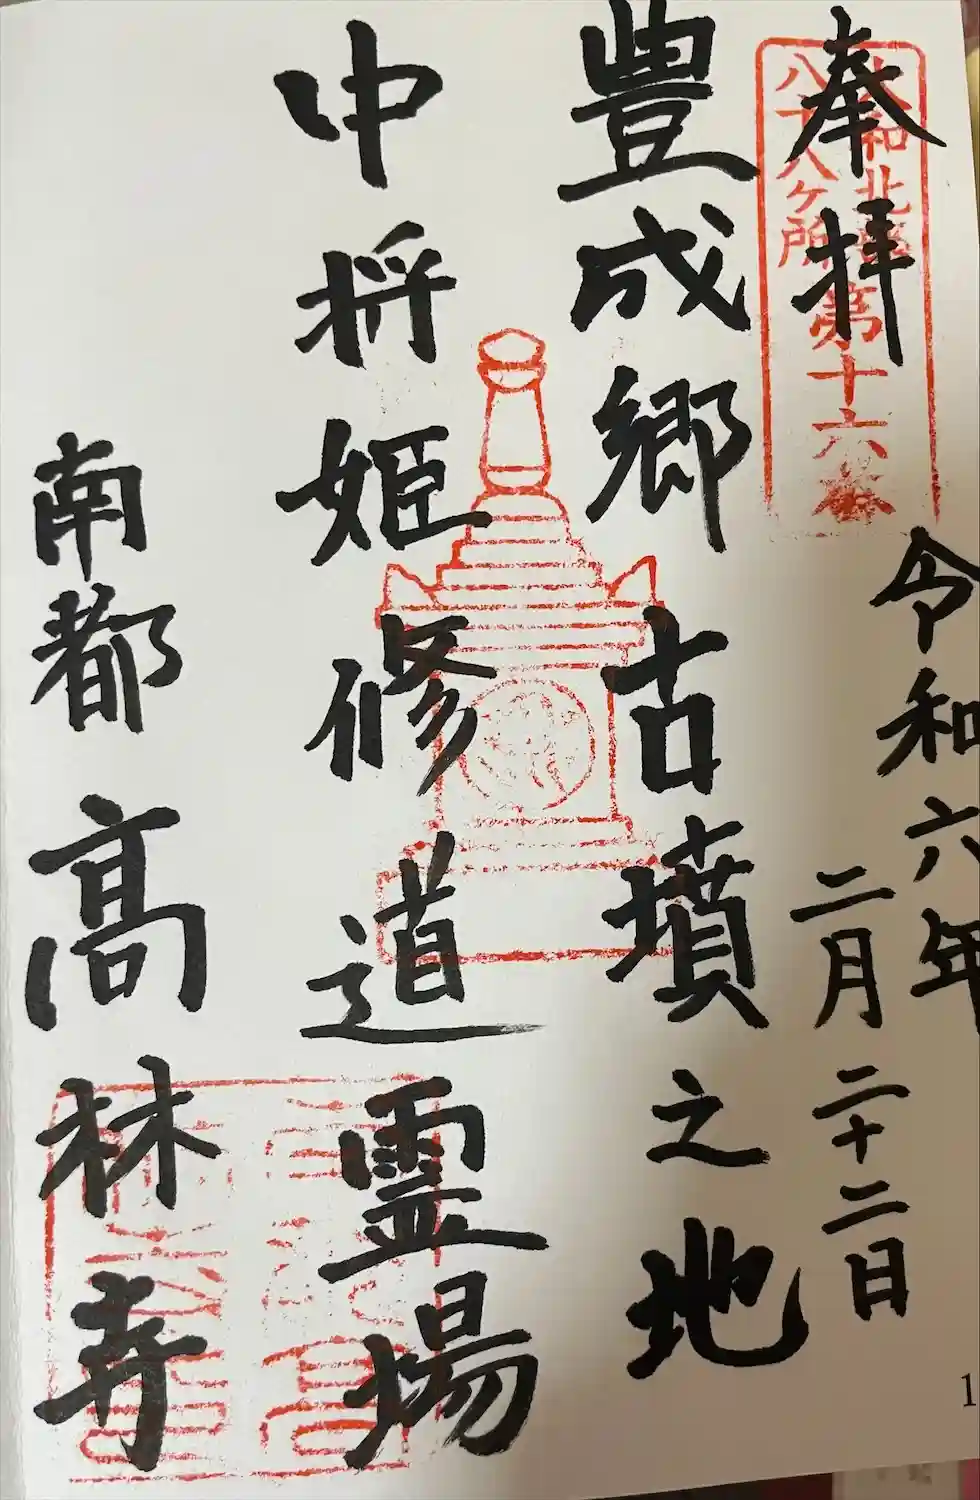 奉拝
大和北部
八十八ヶ所
第十六番
令和六年
二月二十二日
豊成郷古墳之地
中将姫修道霊場
南都高林寺
1